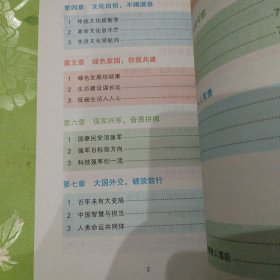 第四章 文化自信，不竭源泉
1 传统文化焕新春
2 革命文化放光芒
3 先进文化领航向
第五章 绿色家园，你我共建
1 绿色发展结硕果
2 生态建设谋长远
3 低碳生活入人心
第六章 强军兴军，奋勇拼搏
1 国泰民安须强军
2 强军目标指方向
3 科技强军创一流
第七章 大国外交，破浪前行
1 百年未有大变局
2 中国智慧与担当
3 人类命运共同体
2